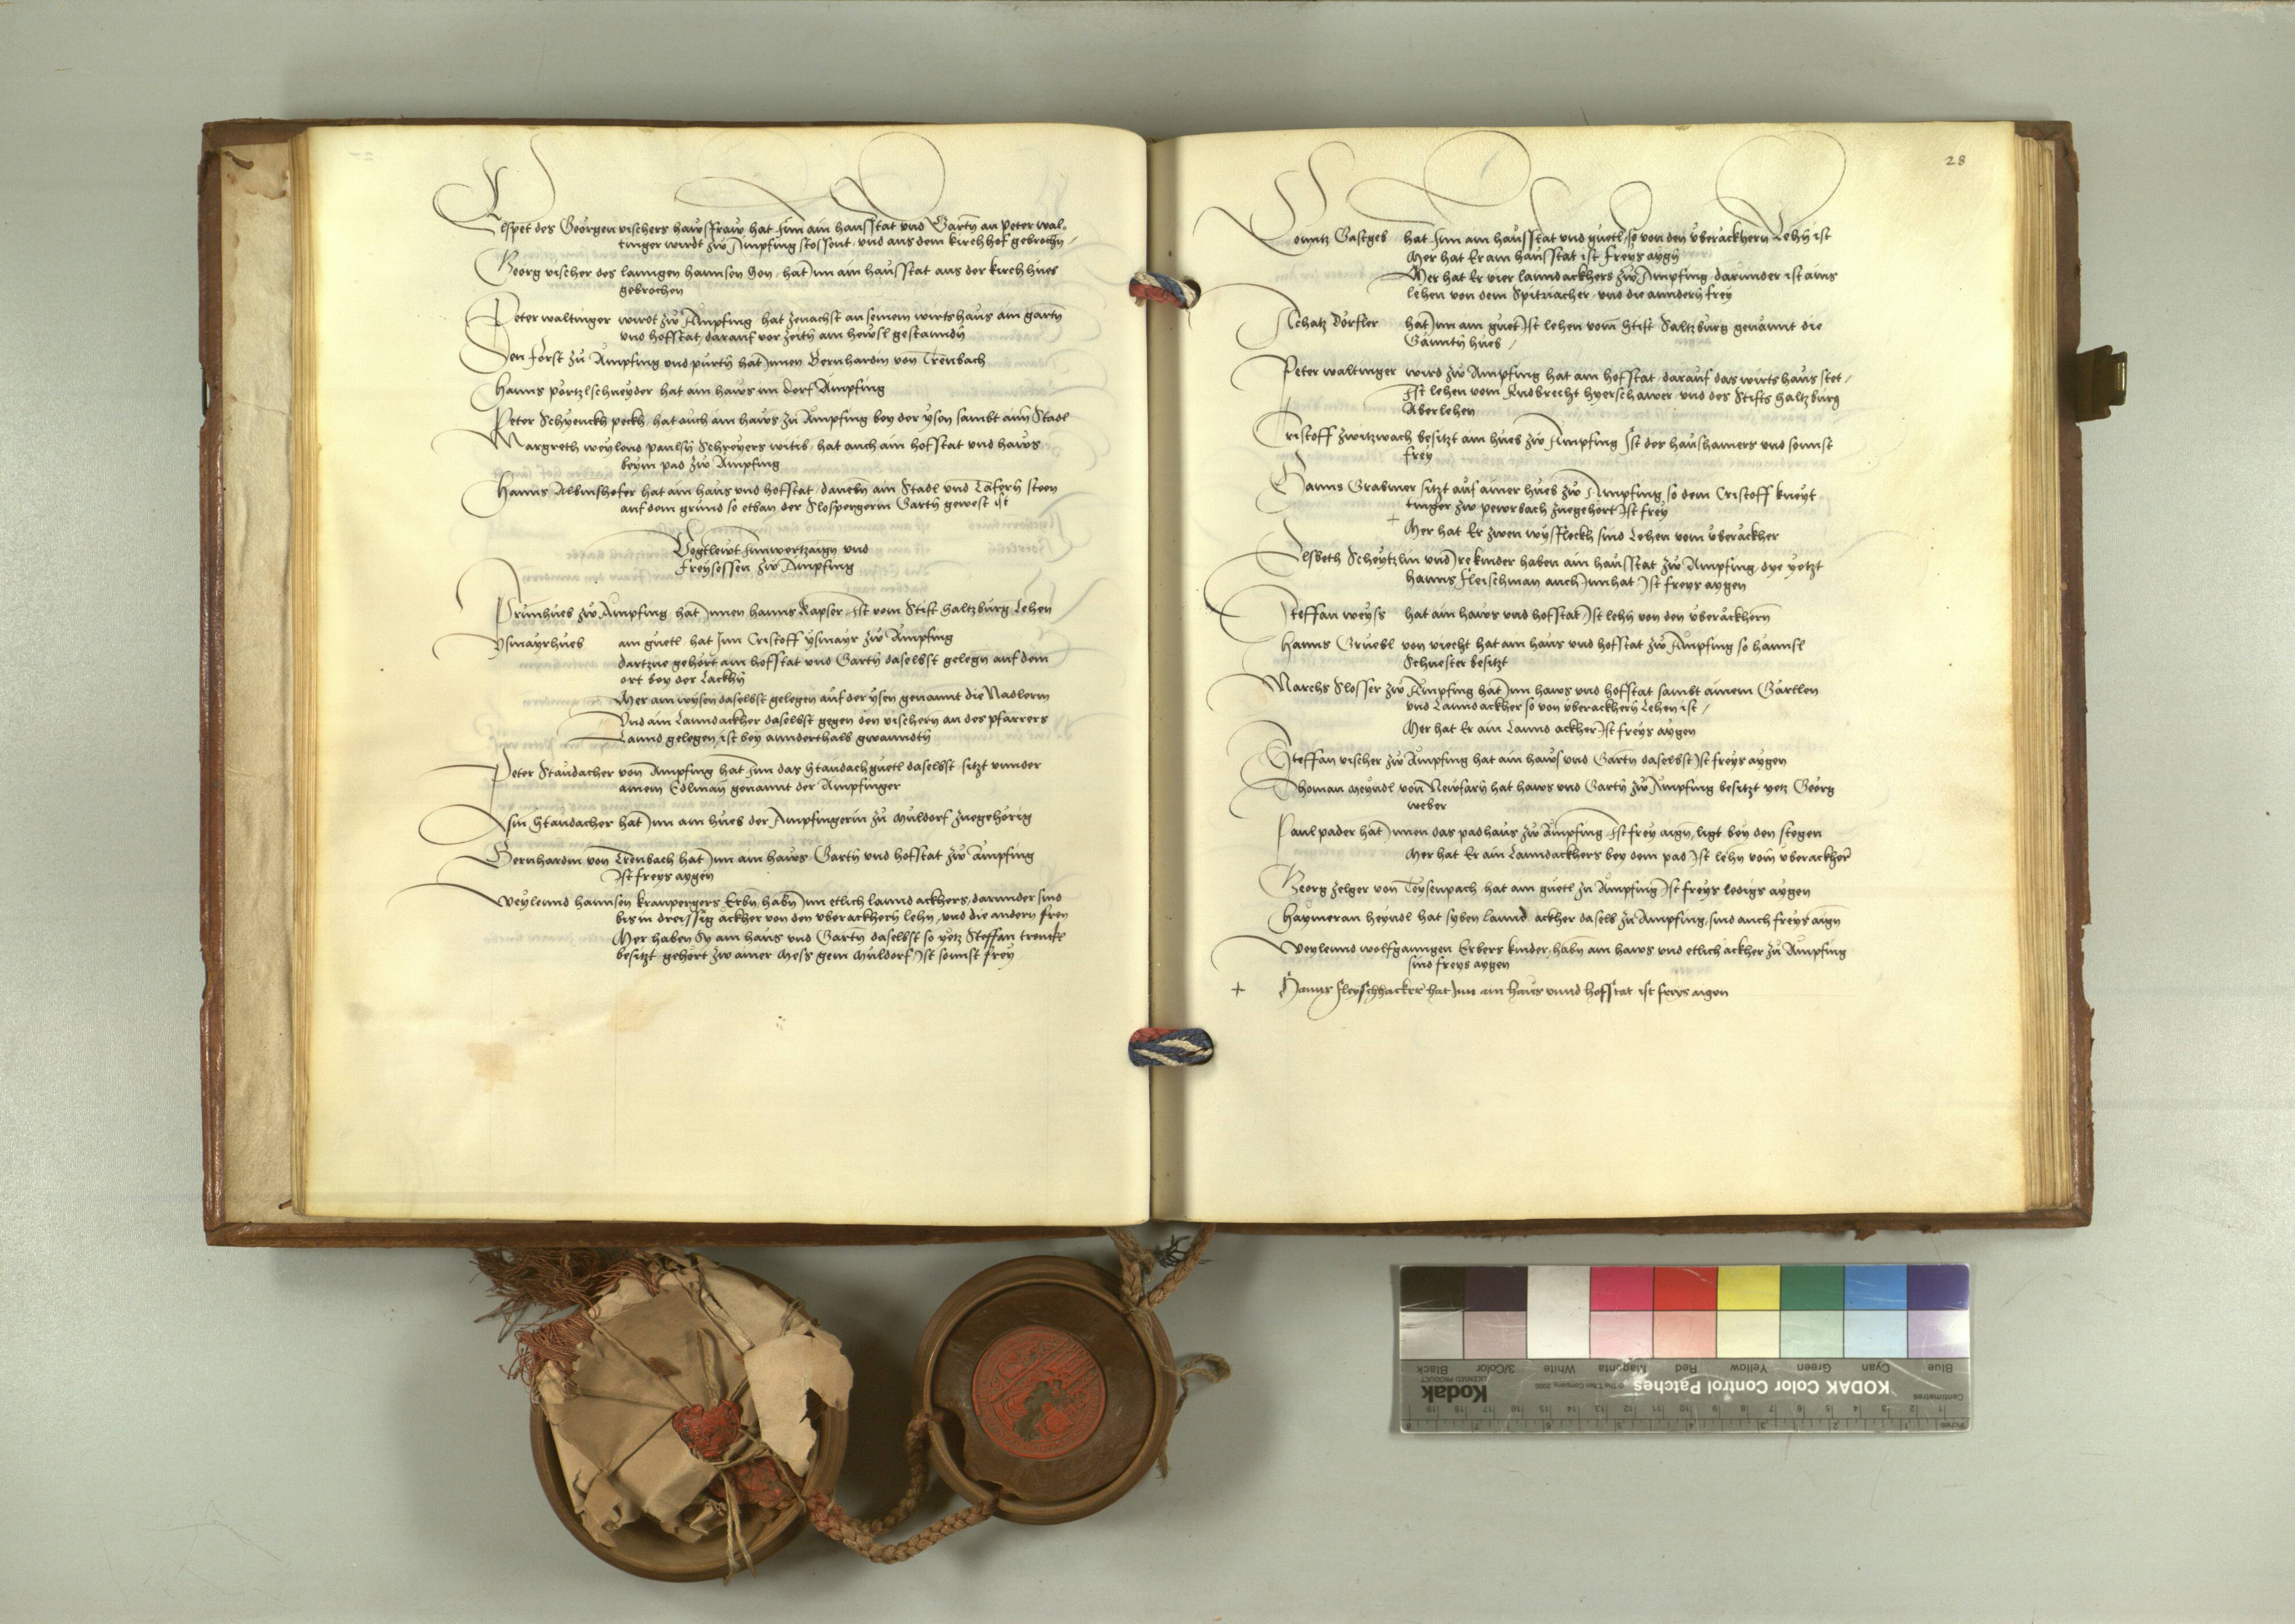 Elspet des Georgen vischers hawsfraw hat Inn ain hausstat und Gartn an peter wal-
tinger wirdt zw Ampfing stossent, und aus dem kirchhof gebrochn /
Georg vischer des lanngen hannsen Son, hat Inn ain hausstat aus der kirchhueb
gebrochen
Peter waltinger wirdt zw Ampfing hat zenachst an seinem wirtshaus ain gartn
und hofstat, darauf vor zeitn ain hewsl gestanndn
Den Forst zu Ampfing und purtn hat Innen Bernhardin von Trenbach
Hanns portzlschneyder hat ain haws im dorf Ampfing
Peter Schyenckh peckh, hat auch ain haws zu Ampfing bey der ysen sambt aim Stadl
Margreth weylend paulsn Schreyers witib, hat auch ain hofstat und haws
beym pad zw Ampfing
Hanns Albmshofer hat ain haus und hofstat, danebn ain Stadl und Tafern steen
auf dem grund so etban der Slospergerin Gartn gewest ist
Vogtlewt Inwertzaign und
Freysessen zw Ampfing
Prunhueb zw Ampfing hat Innen hanns Rapser, Ist vom Stift Saltzburg Lehen
Ysmayrhueb ain guetl hat Inn Cristoff ysmayr zw Ampfing
dartzue gehort ain hofstat und Gartn daselbst gelegn auf dem
ort bey der Lackhn
Mer ain wysen daselbst gelegen auf der ysen genannt die Nadlerin
Und ain Lanndackher daselbst gegen den vischern an des pfarrers
Lannd gelegen, ist bey annderthalb gwanndtn
Peter Staudacher von Ampfing hat Inn das Staudachguetl daselbst sitzt unnder
ainem Edlman genannt der Ampfinger
Asm Staudacher hat Inn ain hueb der Ampfingerin zu Muldorf zuegehorig
Bernhardin von Trenbach hat Inn ain haws Gartn und hofstat zw Ampfing
Ist freys aygen
Weylennd hannsen kranpergers Erbn, habn Inn etlich lannd ackhers, darunnder sind
bis in dreissig ackher von den uberackhern lehn, und die andern frey
Mer haben Sy ain haus und Gartn daselbst so yetz Steffan trenckl
besitzt, gehort zw ainer Mess gein Muldorf Ist sonnst frey
28
Conntz Gastgeb hat Inn ain hausstat und guetl, so von den uberackhern Lehn ist
Mer hat Er ain hausstat ist freys aygn
Mer hat Er vier lanndackhers zw Ampfing, darunder ist ains
lehen von dem Spitznacher, und die anndern frey
Achatz Dorfler hat Inn ain guet Ist lehen vom Stift Saltzburg genannt die
hueb /
Peter waltinger wird zw Ampfing hat ain hofstat, darauf das wirtshaus stet /
Ist lehen vom hyerschawer, und des Stifts Saltzburg
Aberlehen
Cristoff zwitzwach besitzt ain hueb zw Ampfing Ist des haushamers und sonnst
frey
Hanns Grabmer sitzt auf ainer hueb zw Ampfing so dem Cristoff kneyt
tinger zw pewrbach zuegehort Ist frey
+ Mer hat Er zwen wysfleckh sind Lehen vom uberackher
Elsbeth Scheytzlin und Ire kinder haben ain hausstat zw Ampfing, dye yetzt
hanns Fleischman auch Innhat Ist freys aygen
Steffan weyss hat ain haws und hofstat Ist lehn von den uberackhern
Hanns Gruebl von viecht hat ain haus und hofstat zw Ampfing so hannsl
Schuester besitzt
Marchs Slosser zw Ampfing hat Inn haws und hofstat sambt ainem Gartlen
und Lanndackher so von uberackhern Lehen ist /
Mer hat Er ain Lannd ackher Ist freys aygen
Steffan vischer zw Ampfing hat ain haws und Gartn daselbst Ist freys aygen
Thoman Meyndl von Newfarn hat haws und Gartn zw Ampfing besitzt yetz Georg
weber
Paul pader hat Innen das padhaus zw Ampfing, Ist frey aign, ligt bey den stegen
Mer hat Er ain Lanndackhers bey dem pad Ist lehn vom uberackher
Georg zelger von Teysenpach, hat ain guetl zu Ampfing Ist freys ledigs aygen
Haymeran heyndl hat syben lannd ackher daselb zu Ampfing, sind auch freys aign
Weylennd wolfganngen Erbers kinder, habn ain haws und etlich ackher zu Ampfing
sind freys aygen
+ Hanns fleyschhacker hat Inn ain haus unnd hofstat ist freys aigen
KODAK Color Control Patches
Kodak
LICENSED PRODUCT
© The Tiffen Company, 2000
Blue Cyan Green Yellow Red Magenta White 3/Color Black
Centimetres
Inches